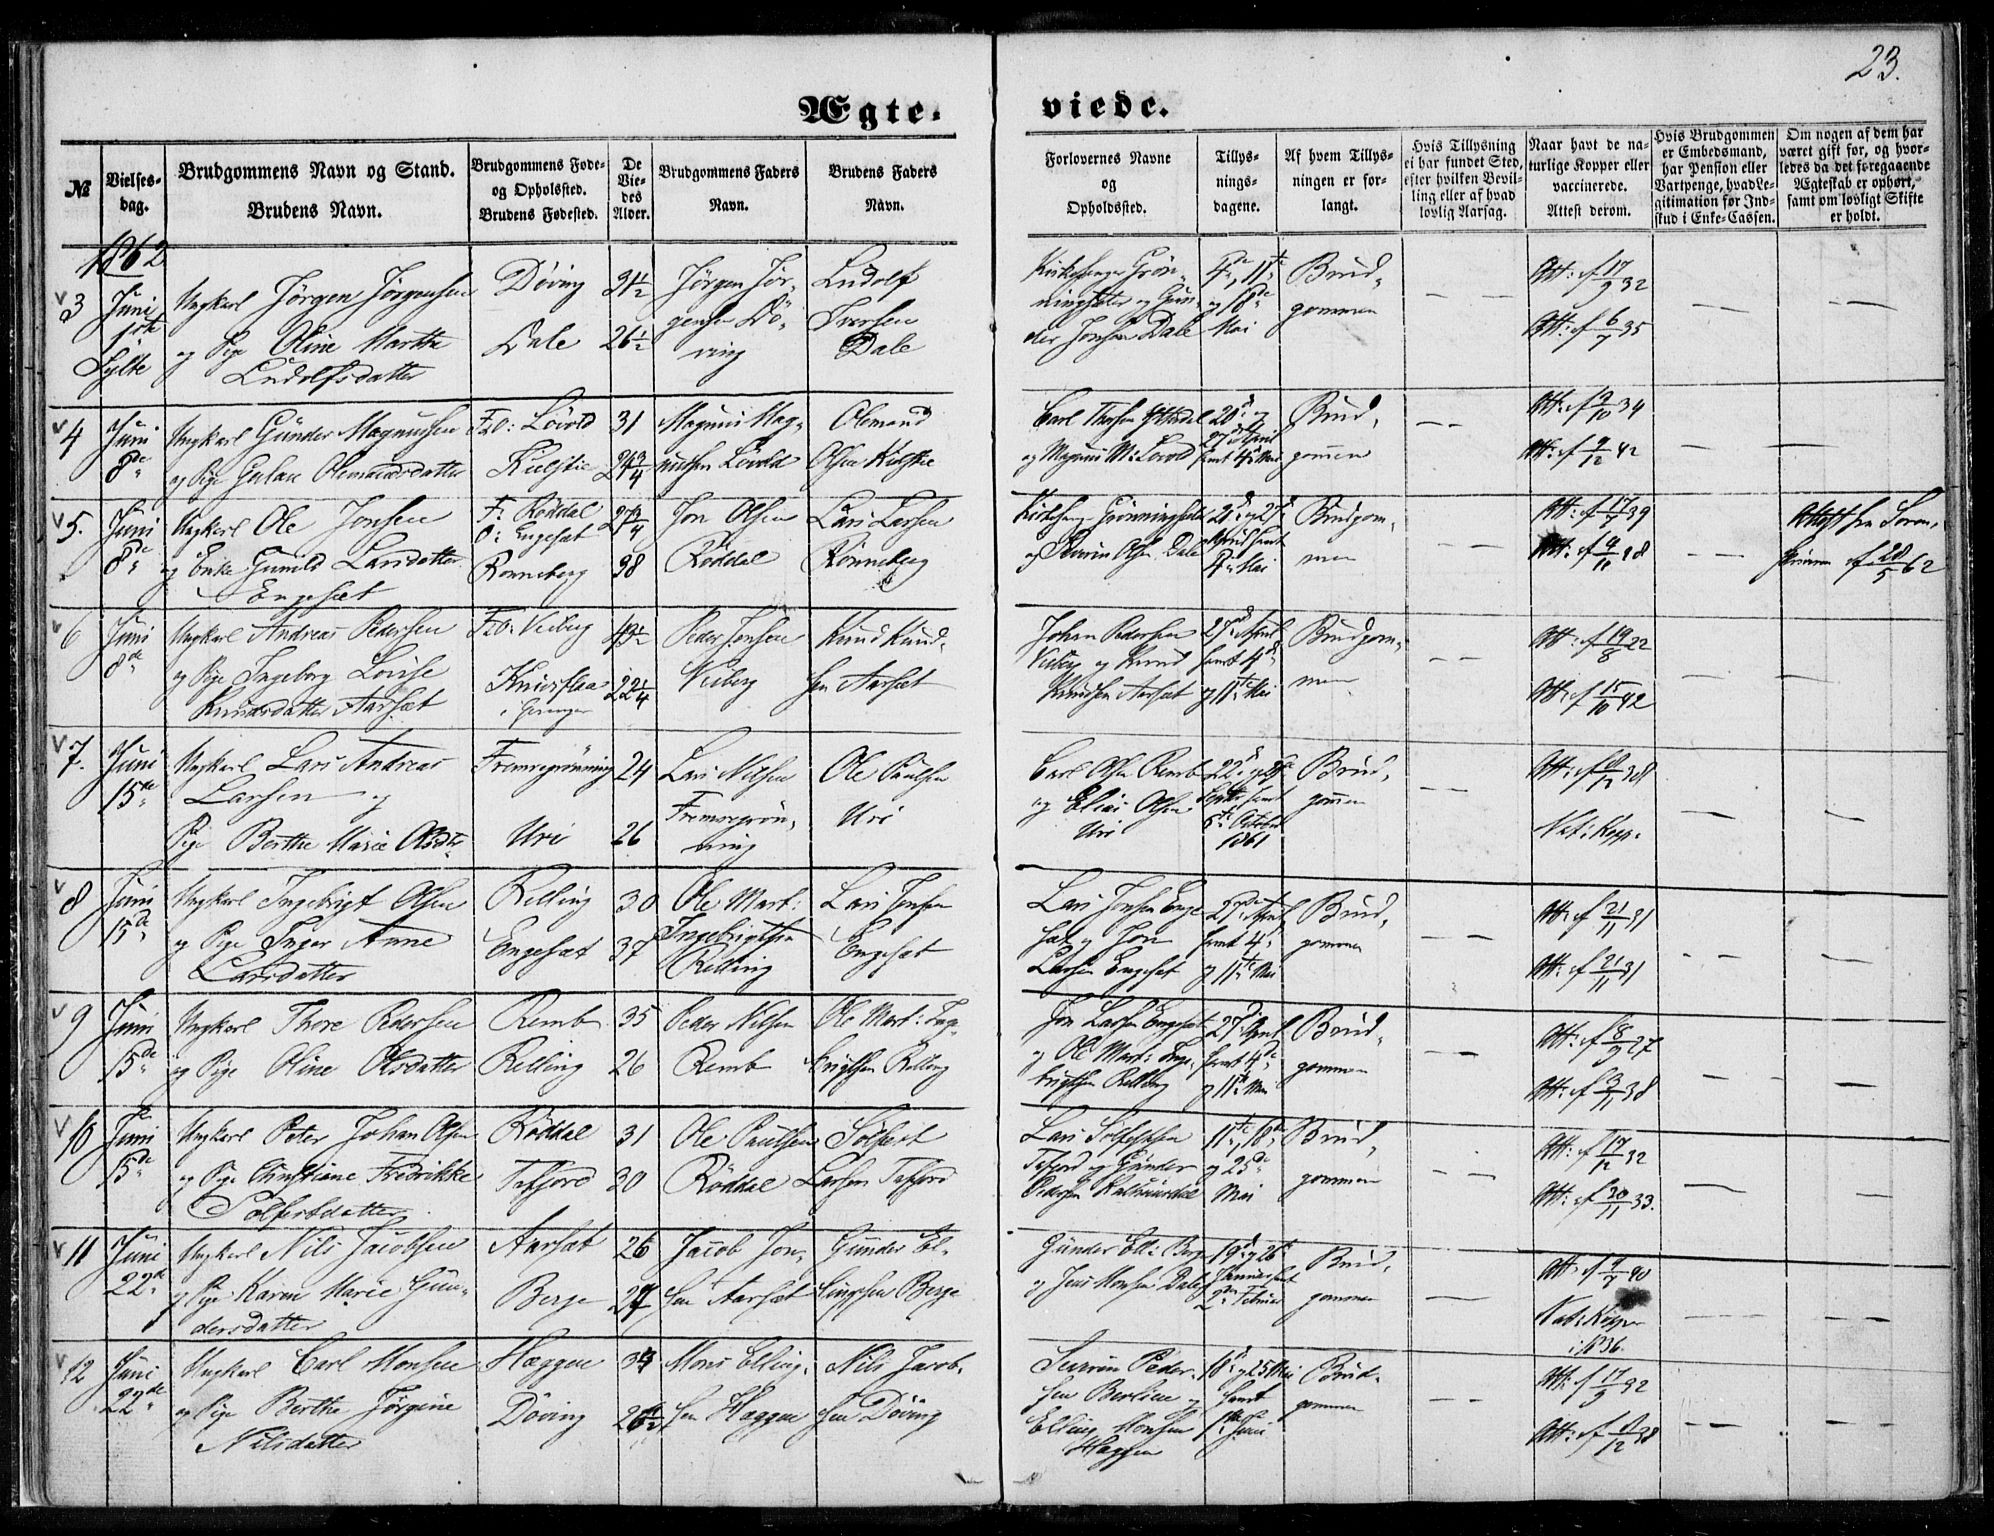 23.
Ægte-
viede.
№
Vielses-
dag.
Brudgommens Navn og Stand.
Brudens Navn.
Brudgommens Føde-
og Opholdsted.
Brudens Fødested.
De
Vie-
des
Alder.
Brudgommens Faders
Navn.
Brudens Faders
Navn.
Forlovernes Navne
og
Opholdssted.
Tillys-
nings-
dagene.
Af hvem Tillys-
ningen er for-
langt.
Hvis Tillysning
ei har fundet Sted,
efter hvilken Bevil-
ling eller af hvad
lovlig Aarsag.
Naar havt de na-
turlige Kopper eller
vaccinerede.
Attest derom.
Hvis Brudgommen
er Embedsmand,
har Pension eller
Vartpenge, hvad Le-
gitimation for Ind-
skud i Enke-Cassen.
Om nogen af dem har
været gift før, og hvor-
ledes da det foregaaende
Ægteskab er ophørt,
samt om lovligt Skifte
er holdt.
1862
3
Juni
i
Sylte
Ungkarl Jørgen Jørgensen
og Pige Oline Marthe
Ludolfsdatter
Døving
Dale
31½
26½
Jørgen Jør-
gensen Dö-
ving
Ludolf
Iversen
Dale
Kirkesanger Grön-
ningsæter og Gun-
der Jonsen Dale
4de, 11te
og 18de
Mai
Brud-
gommen
Att: af 17/9 32
Att: af 6/7 35
4
Juni
8de
Ungkarl Gunder Magnussen
og Pige Gulau Olemandsdatter
F&O: Løvold
31
24¾
Magnus Mag-
nussen Løvold
Olemand
Olsen
Carl Thorsen
og Magnus M: Lovold
20de og
27de April
samt 4de Mai
Brud-
gommen
Att: af 9/10 34
Att: af 9/12 42
5.
Juni
8de
Ungkarl Ole Jonsen
og Enke Gunild Larsdatter
Engesæt
F: Røddal
O: Engesæt
Ronneberg
27¾
38
Jon Olsen
Røddal
Lars Larsen
Rönneberg
Kirkesang: Grönningsæter
og Severin Olsen Dale
20de og 27de
April samt
4de Mai
Brudgom-
men
Att: af 17/7 39
Attest fra Soren-
skriveren af 28/5 62
6
Juni
8de
Ungkarl Andreas Pedersen
og Pige Ingeborg Lovise
Knudsdatter Aarsæt
F&O: Veiberg
Knivsflaa
i Geiranger
43½
22¼
Peder Jensen
Veiberg
Knud Knud-
sen Aarsæt
Johan Pedersen
Veiberg og Knud
Knudsen Aarsæt
27de April
samt 4de
og 11te Mai
Brudgom-
men
Att: af 19/8 22
Att: af 15/10 42
7.
Juni
15de
Ungkarl Lars Andreas
Larsen og
Pige Berthe Marie Olsdtr
Fremregrönning
Uri
24
26
Lars Nilsen
Fremregrön-
ning
Ole Paulsen
Uri
Carl Olsen Remb
og Elias Olsen
Uri
22de og 29de
Septbr samt
6te October
1861
Brud-
gommen
Nat: Kopp:
8
Juni
15de
Ungkarl Ingebrigt Olsen
og Pige Inger Anne
Larsdatter
Relling
Engesæt
30
37
Ole Mart:
Ingebrigtsen
Relling
Lars Jonsen
Engesæt
Lars Jonsen Enge-
sæt og Jon
Larsen Engesæt
27de April
samt 4de
og 11te Mai
Brud-
gommen
Att: af 21/11 31
Att: af 21/11 31
9
Juni
15de
Ungkarl Thore Pedersen
og Pige Oline Olsdatter
Remb
Relling
35
26
Peder Nilsen
Remb
Ole Mart: Inge-
brigtsen Relling
Jon Larsen Engesæt
og Ole Mart: Inge-
brigtsen Relling
27de April
samt 4de
og 11te Mai
Brud-
gommen
Att: af 8/9 27
Att: af 3/11 38
10
Juni
15de
Ungkarl Peter Johan Olsen
og Pige Christiane Fredrikke
Solfestdatter
Røddal
Tafjord
31
30
Ole Paulsen
Røddal
Solfest
Larsen Tafjord
Lars Solfestsen
Tafjord og Gunder
Pedersen
11te, 18de
og 25de
Mai
Brud-
gommen
Att: af 17/12 32
Att: af 30/11 33.
11
Juni
22de
Ungkarl Nils Jacobsen
og Pige Karen Marie Gun-
dersdatter
Aarsæt
Berge
26
27
Jacob Jon-
sen Aarsæt
Gunder El-
lingsen Berge
Gunder Ell: Berge
og Jens Monsen Dale
19de og 26de
Januar samt
2den Februar
Brud-
gommen
Att: af 9/7 40
Nat: Kopper
i 1836.
12
Juni
22de
Ungkarl Carl Monsen
og Pige Berthe Jörgine
Nilsdatter
Hæggen
Döving
34
26½
Mons Elling-
sen Hæggen
Nils Jacob-
sen Döving
Severin Peder-
sen Berlien og
Elling Monsen
Hæggen
18de og 25 Mai
samt
1ste Juni
Brud-
gommen
Att: af 17/9 32